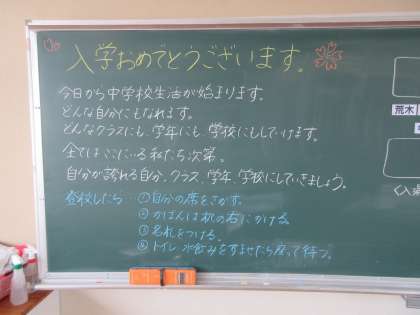 入学おめでとうございます。
今日から中学校生活が始まります。
どんな自分にもなれます。
どんなクラスにも、学年にも、学校にもしていけます。
全てはここにいる私たち次第。
自分が誇れる自分、クラス、学年、学校にしていきましょう。
登校したら… ①自分の席をさがす。
②かばんは机の右にかける
③名札をつける。
④トイレ、水飲みをすませたら座って待つ。
荒木